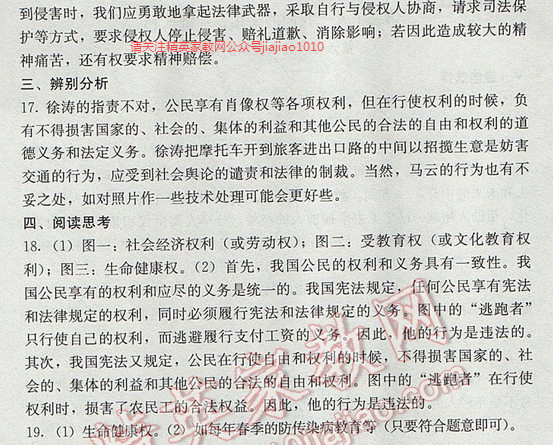 到侵害时，我们应勇敢地拿起法律武器，采取自行与侵权人协商，请求司法保
护等方式，要求侵权人停止侵害、赔礼道歉、消除影响；若因此造成较大的精
请关注精英家教网公众号jiajiao1010
神痛苦，还有权要求精神赔偿。
三、辨别分析
17. 徐涛的指责不对，公民享有肖像权等各项权利，但在行使权利的时候，负
有不得损害国家的、社会的、集体的利益和其他公民的合法的自由和权利的道
德义务和法定义务。徐涛把摩托车开到旅客进出口路的中间以招揽生意是妨害
交通的行为，应受到社会舆论的谴责和法律的制裁。当然，马云的行为也有不
妥之处，如对照片作一些技术处理可能会更好些。
四、阅读思考
18. (1) 图一：社会经济权利（或劳动权）；图二：受教育权（或文化教育权
利）；图三：生命健康权。(2) 首先，我国公民的权利和义务具有一致性。我
国公民享有的权利和应尽的义务是统一的。我国宪法规定，任何公民享有宪法
和法律规定的权利，同时必须履行宪法和法律规定的义务。图中的“逃跑者”
只行使自己的权利，而逃避履行支付工资的义务。因此，他的行为是违法的。
其次，我国宪法又规定，公民在行使自由和权利的时候，不得损害国家的、社
会的、集体的利益和其他公民的合法的自由和权利。图中的“逃跑者”在行使
权利时，损害了农民工的合法权益。因此，他的行为是违法的。
19. (1) 生命健康权。(2) 如每年春季的防传染病教育等（只要符合题意即可）。
精英家教网